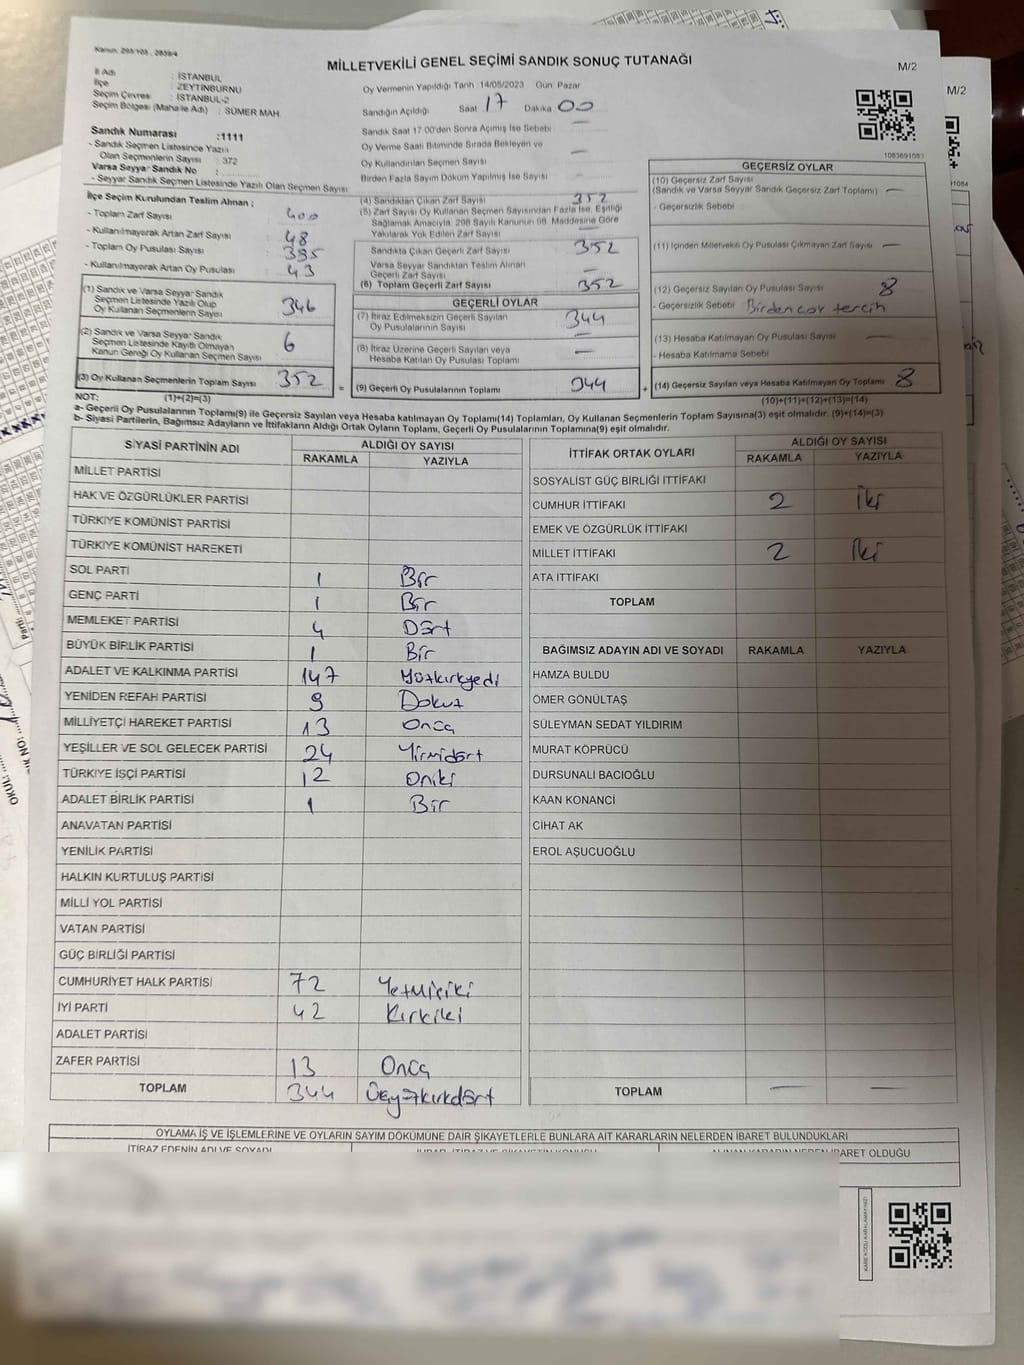 Kanun: 298/105 , 2839/4
MİLLETVEKİLİ GENEL SEÇİMİ SANDIK SONUÇ TUTANAĞI
M/2
M/2
İl Adı : İSTANBUL
İlçe : ZEYTİNBURNU
Seçim Çevresi : İSTANBUL-2
Seçim Bölgesi (Mahalle Adı) : SÜMER MAH.
Oy Vermenin Yapıldığı Tarih 14/05/2023 Gün Pazar
Sandığın Açıldığı Saat 17 Dakika 00
Sandık Saat 17:00'den Sonra Açılmış İse Sebebi —
Oy Verme Saati Bitiminde Sırada Bekleyen ve
Oy Kullandırılan Seçmen Sayısı —
Birden Fazla Sayım Döküm Yapılmış İse Sayısı —
Sandık Numarası :1111
- Sandık Seçmen Listesince Yazılı
Olan Seçmenlerin Sayısı : 372
Varsa Seyyar Sandık No :
- Seyyar Sandık Seçmen Listesinde Yazılı Olan Seçmen Sayısı
İlçe Seçim Kurulundan Teslim Alınan :
- Toplam Zarf Sayısı : 400
- Kullanılmayarak Artan Zarf Sayısı : 48
- Toplam Oy Pusulası Sayısı : 395
- Kullanılmayarak Artan Oy Pusulası : 43
(1) Sandık ve Varsa Seyyar Sandık
Seçmen Listesinde Yazılı Olup
Oy Kullanan Seçmenlerin Sayısı 346
(2) Sandık ve Varsa Seyyar Sandık
Seçmen Listesinde Kayıtlı Olmayan
Kanun Gereği Oy Kullanan Seçmen Sayısı 6
(3) Oy Kullanan Seçmenlerin Toplam Sayısı 352 =
(4) Sandıktan Çıkan Zarf Sayısı 352
(5) Zarf Sayısı Oy Kullanan Seçmen Sayısından Fazla İse, Eşitliği
Sağlamak Amacıyla, 298 Sayılı Kanunun 98. Maddesine Göre
Yakılarak Yok Edilen Zarf Sayısı
Sandıkta Çıkan Geçerli Zarf Sayısı 352
Varsa Seyyar Sandıktan Teslim Alınan
Geçerli Zarf Sayısı —
(6) Toplam Geçerli Zarf Sayısı 352
GEÇERLİ OYLAR
(7) İtiraz Edilmeksizin Geçerli Sayılan
Oy Pusulalarının Sayısı 344
(8) İtiraz Üzerine Geçerli Sayılan veya
Hesaba Katılan Oy Pusulası Toplamı —
(9) Geçerli Oy Pusulalarının Toplamı 344 +
1083691083
GEÇERSİZ OYLAR
(10) Geçersiz Zarf Sayısı
(Sandık ve Varsa Seyyar Sandık Geçersiz Zarf Toplamı) —
- Geçersizlik Sebebi
(11) İçinden Milletvekili Oy Pusulası Çıkmayan Zarf Sayısı —
(12) Geçersiz Sayılan Oy Pusulası Sayısı 8
- Geçersizlik Sebebi Birden çok tercih
(13) Hesaba Katılmayan Oy Pusulası Sayısı —
- Hesaba Katılmama Sebebi
(14) Geçersiz Sayılan veya Hesaba Katılmayan Oy Toplamı 8
NOT: (1)+(2)=(3) (10)+(11)+(12)+(13)=(14)
a- Geçerli Oy Pusulalarının Toplamı(9) ile Geçersiz Sayılan veya Hesaba katılmayan Oy Toplamı(14) Toplamları, Oy Kullanan Seçmenlerin Toplam Sayısına(3) eşit olmalıdır. (9)+(14)=(3)
b- Siyasi Partilerin, Bağımsız Adayların ve İttifakların Aldığı Ortak Oyların Toplamı, Geçerli Oy Pusulalarının Toplamına(9) eşit olmalıdır.
SİYASİ PARTİNİN ADI ALDIĞI OY SAYISI
RAKAMLA YAZIYLA
MİLLET PARTİSİ
HAK VE ÖZGÜRLÜKLER PARTİSİ
TÜRKİYE KOMÜNİST PARTİSİ
TÜRKİYE KOMÜNİST HAREKETİ
SOL PARTİ 1 Bir
GENÇ PARTİ 1 Bir
MEMLEKET PARTİSİ 4 Dört
BÜYÜK BİRLİK PARTİSİ 1 Bir
ADALET VE KALKINMA PARTİSİ 147 Yüzkırkyedi
YENİDEN REFAH PARTİSİ 9 Dokuz
MİLLİYETÇİ HAREKET PARTİSİ 13 Onüç
YEŞİLLER VE SOL GELECEK PARTİSİ 24 Yirmidört
TÜRKİYE İŞÇİ PARTİSİ 12 Oniki
ADALET BİRLİK PARTİSİ 1 Bir
ANAVATAN PARTİSİ
YENİLİK PARTİSİ
HALKIN KURTULUŞ PARTİSİ
MİLLİ YOL PARTİSİ
VATAN PARTİSİ
GÜÇ BİRLİĞİ PARTİSİ
CUMHURİYET HALK PARTİSİ 72 Yetmişiki
İYİ PARTİ 42 Kırkiki
ADALET PARTİSİ
ZAFER PARTİSİ 13 Onüç
TOPLAM 344 Üçyüzkırkdört
İTTİFAK ORTAK OYLARI ALDIĞI OY SAYISI
RAKAMLA YAZIYLA
SOSYALİST GÜÇ BİRLİĞİ İTTİFAKI
CUMHUR İTTİFAKI 2 İki
EMEK VE ÖZGÜRLÜK İTTİFAKI
MİLLET İTTİFAKI 2 İki
ATA İTTİFAKI
TOPLAM
BAĞIMSIZ ADAYIN ADI VE SOYADI RAKAMLA YAZIYLA
HAMZA BULDU
ÖMER GÖNÜLTAŞ
SÜLEYMAN SEDAT YILDIRIM
MURAT KÖPRÜCÜ
DURSUNALİ BACIOĞLU
KAAN KONANCİ
CİHAT AK
EROL AŞUCUOĞLU
TOPLAM — —
OYLAMA İŞ VE İŞLEMLERİNE VE OYLARIN SAYIM DÖKÜMÜNE DAİR ŞİKAYETLERLE BUNLARA AİT KARARLARIN NELERDEN İBARET BULUNDUKLARI
İTİRAZ EDENİN ADI VE SOYADI
İBARET OLDUĞU